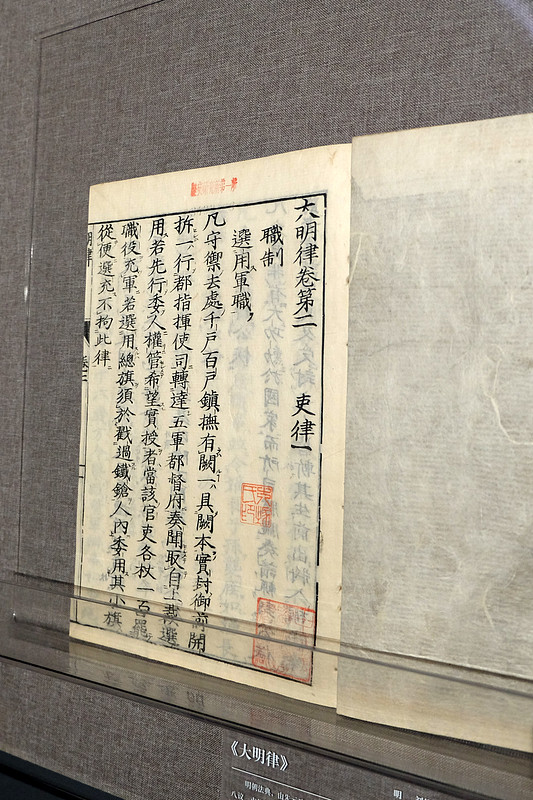 大明律卷第二 吏律一
職制
選用軍職
凡守禦去處千戶百戶鎮撫有闕一具闕本實封御前開
拆一行都指揮使司轉達五軍都督府奏聞取自上裁選
用若先行委人權管希望實授者當該官吏各杖一百罷
職役充軍若選用總旗須於戳過鐵鎗人內委用其小旗
從便選充不拘此律
明律
《大明律》
明朝法典
明